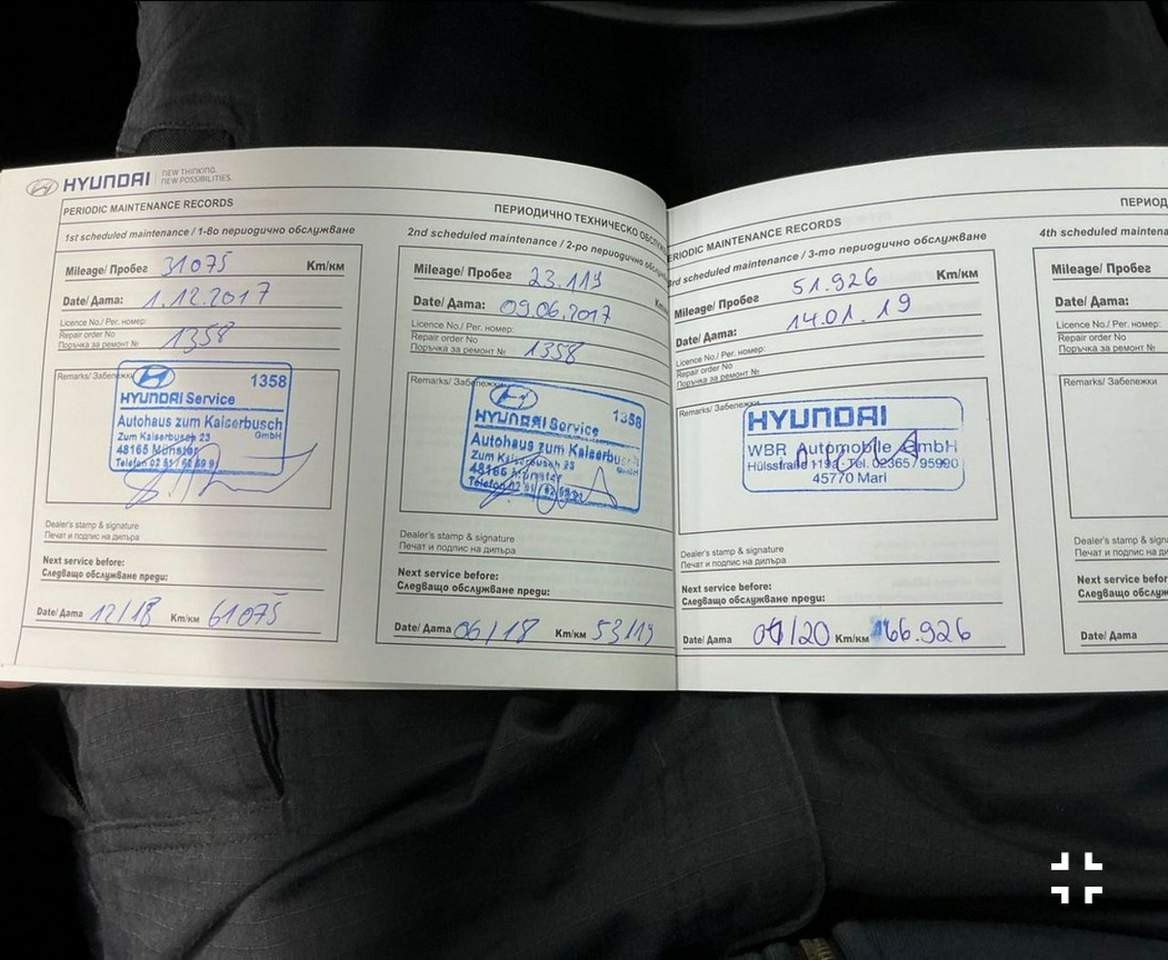 HYUNDAI NEW THINKING.
NEW POSSIBILITIES.
PERIODIC MAINTENANCE RECORDS
ПЕРИОДИЧНО ТЕХНИЧЕСКО ОБСЛУЖ
1st scheduled maintenance / 1-во периодично обслужване
Mileage/ Пробег 31075 Km/км
Date/ Дата: 1.12.2017
Licence No./ Рег. номер:
Repair order No
Поръчка за ремонт № 1358
Remarks/ Забележки
HYUNDAI Service 1358
Autohaus zum Kaiserbusch
GmbH
Zum Kaiserbusch 23
48165 Münster
Telefon 02 51/
Dealer's stamp & signature
Печат и подпис на дилъра
Next service before:
Следващо обслужване преди:
Date/ Дата 12/18 Km/км 61075
2nd scheduled maintenance / 2-ро периодично обслуж
Mileage/ Пробег 23.119
Date/ Дата: 09.06.2017
Licence No./ Рег. номер:
Repair order No
Поръчка за ремонт № 1358
Remarks/ Забележки
HYUNDAI Service 1358
Autohaus zum Kaiserbusch
GmbH
Zum Kaiserbusch 23
48165 Münster
Telefon 02 51/
Dealer's stamp & signature
Печат и подпис на дилъра
Next service before:
Следващо обслужване преди:
Date/ Дата 06/18 Km/км 53119
ERIODIC MAINTENANCE RECORDS
ПЕРИОД
3rd scheduled maintenance / 3-то периодично обслужване
Mileage/ Пробег 51.926 Km/км
Date/ Дата: 14.01.19
Licence No./ Рег. номер:
Repair order No
Поръчка за ремонт №
Remarks/ Забележки
HYUNDAI
WBR Automobile GmbH
Hülsstraße 119a, Tel. 02365/95990
45770 Marl
Dealer's stamp & signature
Печат и подпис на дилъра
Next service before:
Следващо обслужване преди:
Date/ Дата 01/20 Km/км 66.926
4th scheduled maintena
Mileage/ Пробег
Date/ Дата:
Licence No./ Рег. номер:
Repair order No
Поръчка за ремонт №
Remarks/ Забележки
Dealer's stamp & sign
Печат и подпис на ди
Next service befor
Следващо обслужв
Date/ Дата